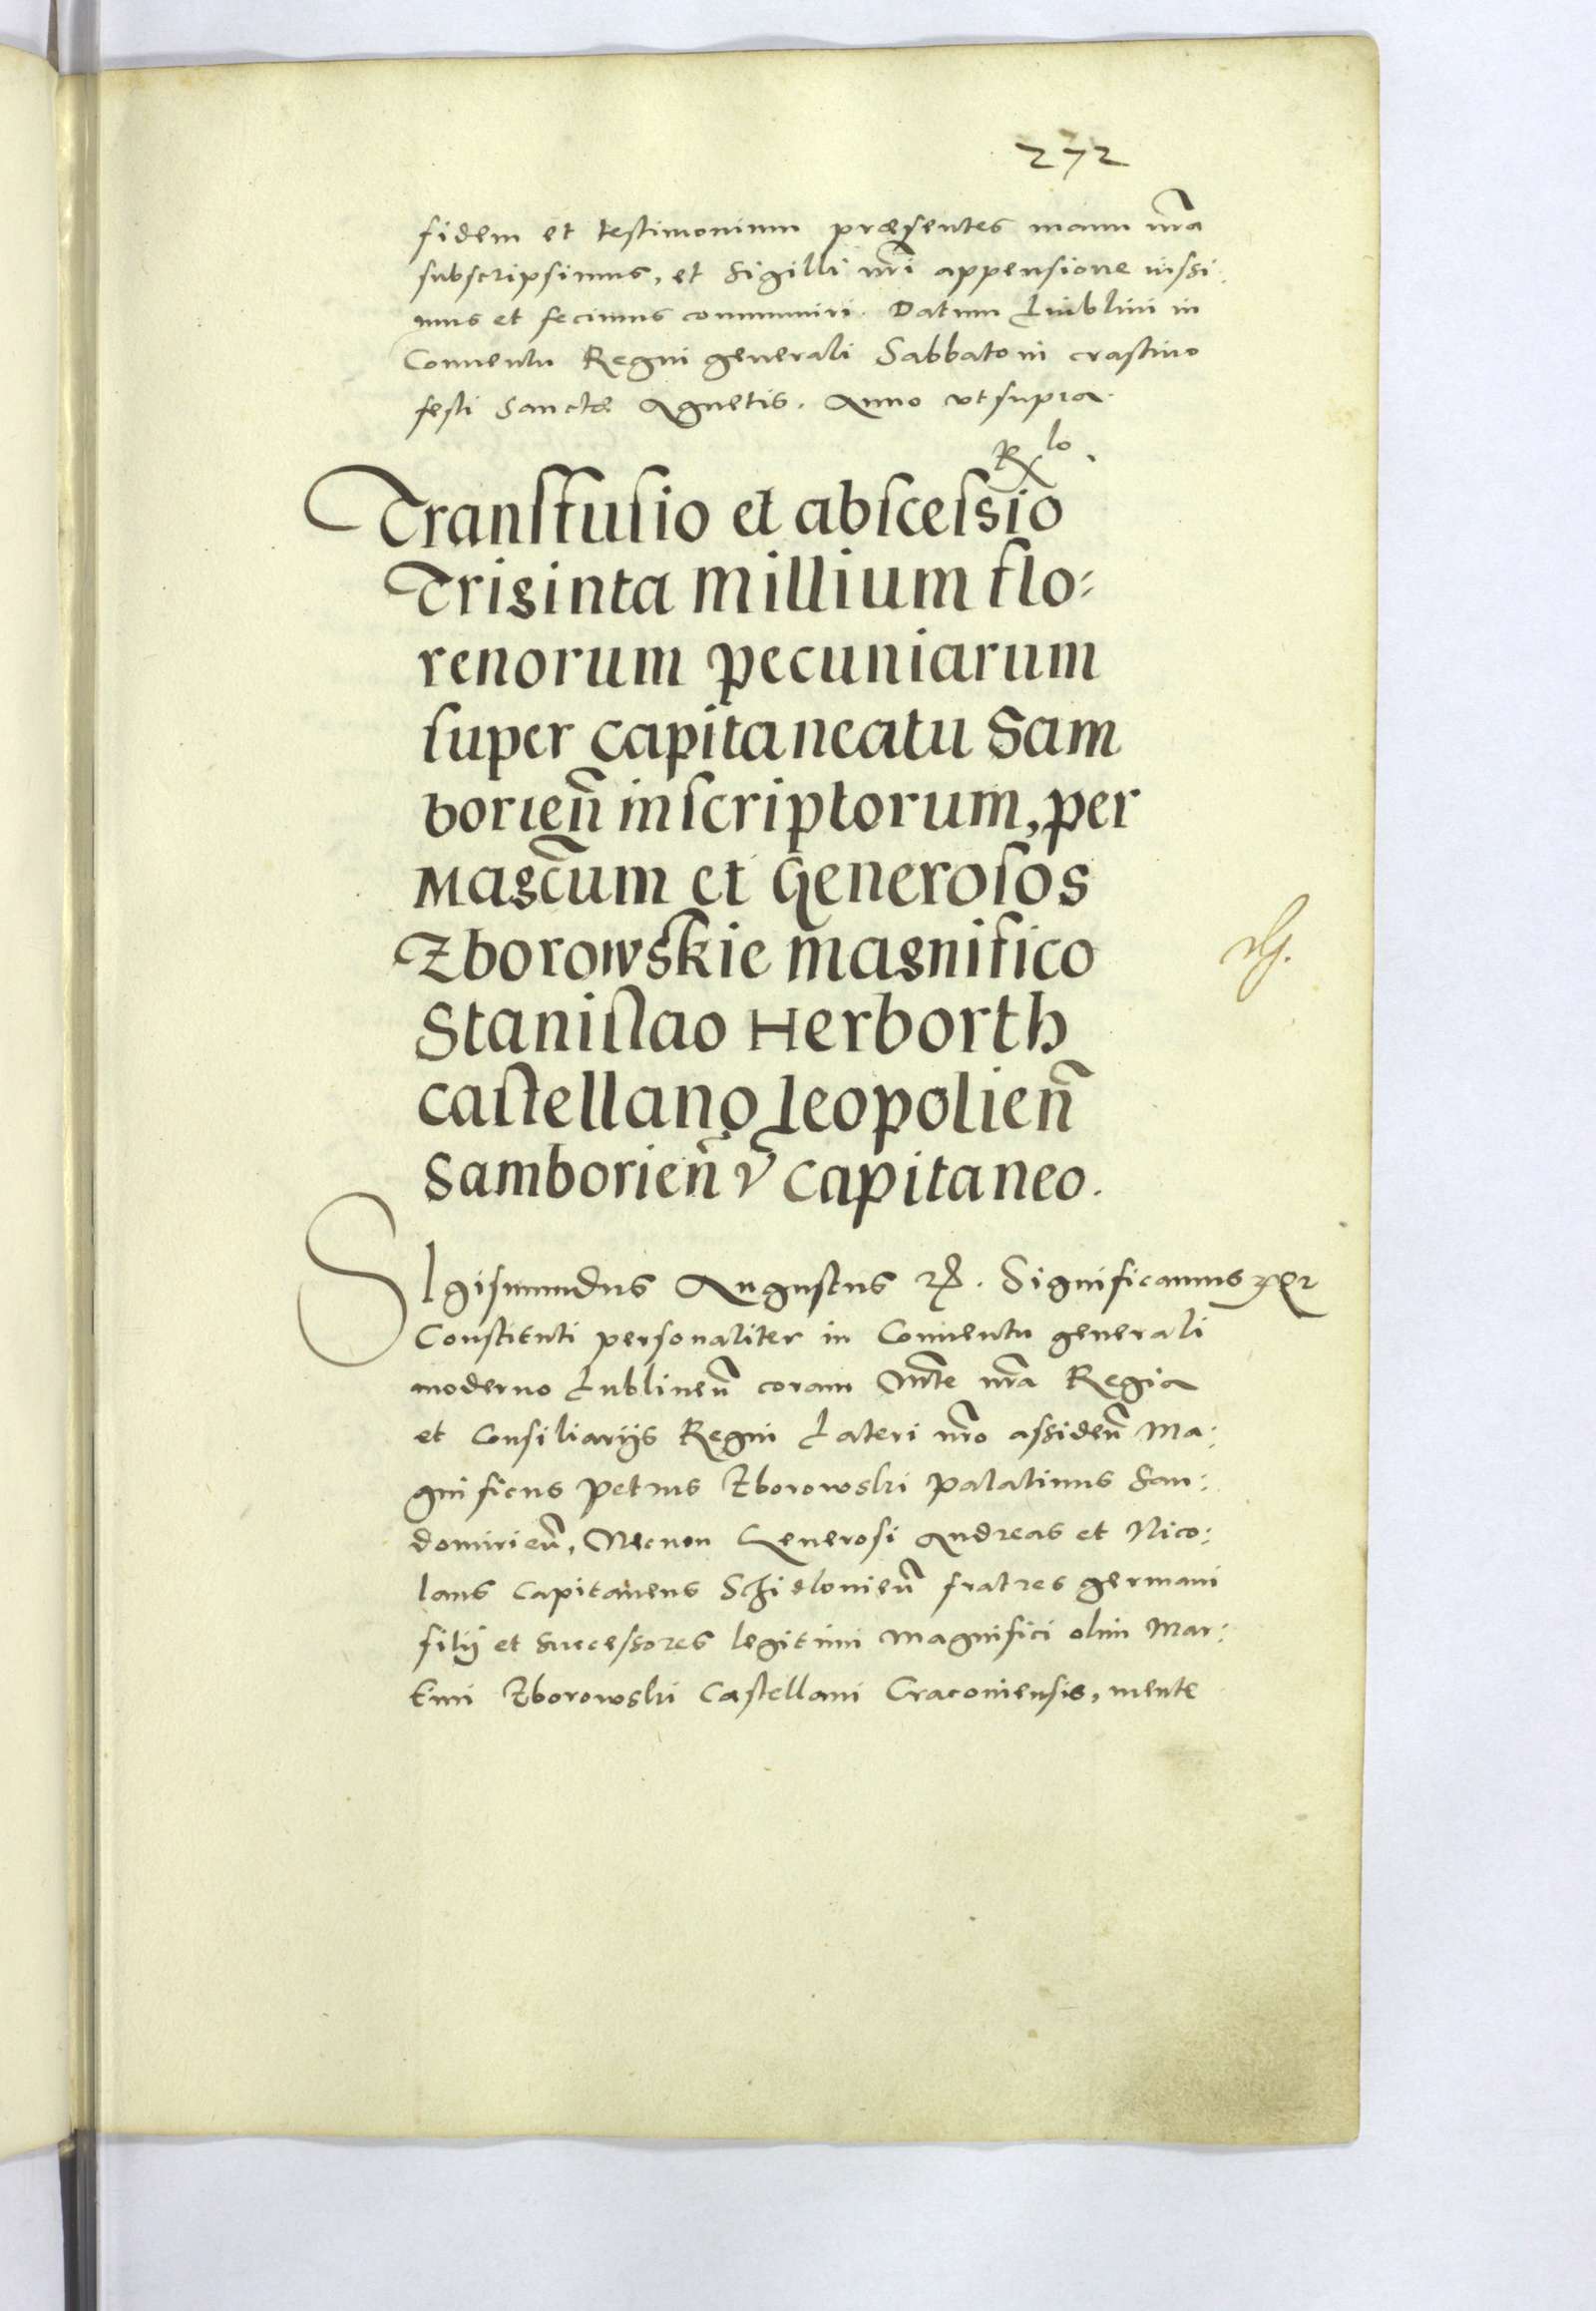 272
fidem et testimonium præsentes manu nr̃a
subscripsimus, et Sigilli nr̃i appensione iussi:
mus et fecimus communiri. Datum Lublini in
Conuentu Regni generali Sabbato in crastino
festi Sanctæ Agnetis. Anno vt supra.
Transfusio et abscessio
Triginta Millium flo:
renorum pecuniarum
super Capitaneatu Sam
borien̄ inscriptorum, per
Magcūm et Generosos
Zborowskie Magnifico
Stanislao Herborth
Castellano Leopolien̄
Samborien̄ Capitaneo.
SIgismundus Augustus Significamus
Constienti personaliter in Conuentu generali
moderno Lublinen̄ coram Mte nr̃a Regia
et Consiliarijs Regni Lateri nr̃o assiden̄ Ma:
gnificus Petrus Zborowski Palatinus San:
domirien̄, Necnon Generosi Andreas et Nico:
laus Capitaneus Schidlouien̄ fratres germani
filij et Successores legitimi Magnifici olim Mar:
tini Zborowski Castellani Cracouiensis, mente